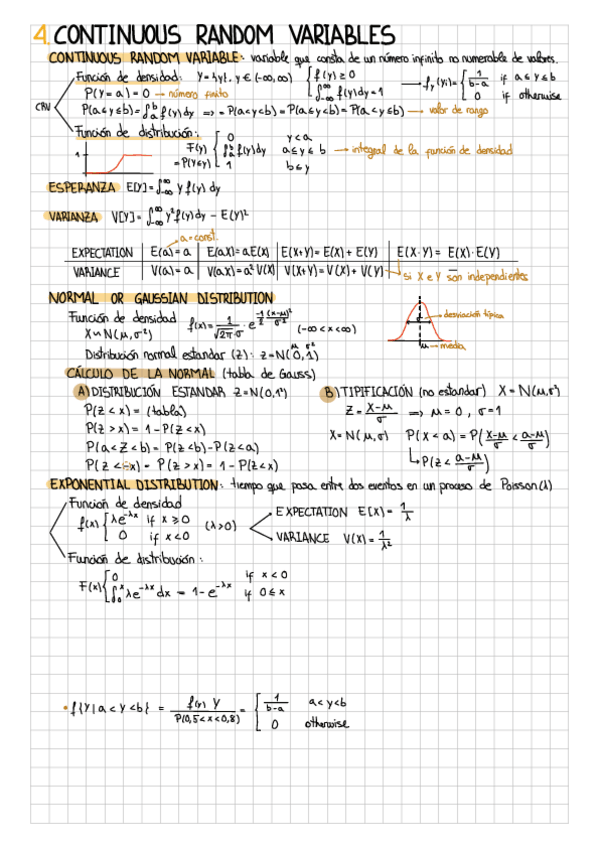 4. CONTINUOUS RANDOM VARIABLES
CONTINUOUS RANDOM VARIABLE: variable que consta de un número infinito no numerable de valores.
CRV
Función de densidad: Y = {y}, y ∈ (-∞,∞) { f(y) ≥ 0 ; ∫_{-∞}^{∞} f(y)dy = 1 → f_y(y) = { 1/(b-a) if a≤y≤b ; 0 if otherwise
P(Y=a) = 0 → número finito
P(a≤y≤b) = ∫_a^b f(y)dy ⇒ = P(a<y<b) = P(a≤y<b) = P(a<y≤b) → valor de rango
Función de distribución:
1
F(y) = P(Y≤y) { 0 y<a ; ∫_a^b f(y)dy a≤y≤b ; 1 b≤y → integral de la función de densidad
ESPERANZA E[Y] = ∫_{-∞}^{∞} y f(y) dy
VARIANZA V[Y] = ∫_{-∞}^{∞} y² f(y) dy - E(Y)²
a = const.
EXPECTATION | E(a) = a | E(aX) = aE(X) | E(X+Y) = E(X) + E(Y) | E(X·Y) = E(X)·E(Y)
VARIANCE | V(a) = a | V(aX) = a² V(X) | V(X+Y) = V(X) + V(Y) → si X e Y son independientes
NORMAL OR GAUSSIAN DISTRIBUTION
Función de densidad f(x) = 1/(√2π·σ) · e^{-1/2 (x-μ)²/σ²} (-∞<x<∞)
X~N(μ,σ²)
desviación típica
μ → media
Distribución normal estandar (z): z = N(0,1)
μ σ²
CÁLCULO DE LA NORMAL (tabla de Gauss)
A) DISTRIBUCIÓN ESTANDAR Z = N(0,1²)
P(z < x) = (tabla)
P(z > x) = 1 - P(z < x)
P(a < z < b) = P(z < b) - P(z < a)
P(z < -x) = P(z > x) = 1 - P(z < x)
B) TIPIFICACIÓN (no estandar) X = N(μ,σ²)
Z = (X-μ)/σ ⇒ μ = 0, σ = 1
X = N(μ,σ) P(X < a) = P((X-μ)/σ < (a-μ)/σ)
↳ P(z < (a-μ)/σ)
EXPONENTIAL DISTRIBUTION: tiempo que pasa entre dos eventos en un proceso de Poisson (λ)
Función de densidad
f(x) { λe^{-λx} if x ≥ 0 ; 0 if x < 0 (λ>0)
EXPECTATION E(X) = 1/λ
VARIANCE V(X) = 1/λ²
Función de distribución:
F(x) { 0 if x < 0 ; ∫_0^x λe^{-λx} dx = 1 - e^{-λx} if 0 ≤ x
• f{Y|a<y<b} = f(y) Y / P(0,5<x<0,8) = { 1/(b-a) a<y<b ; 0 otherwise